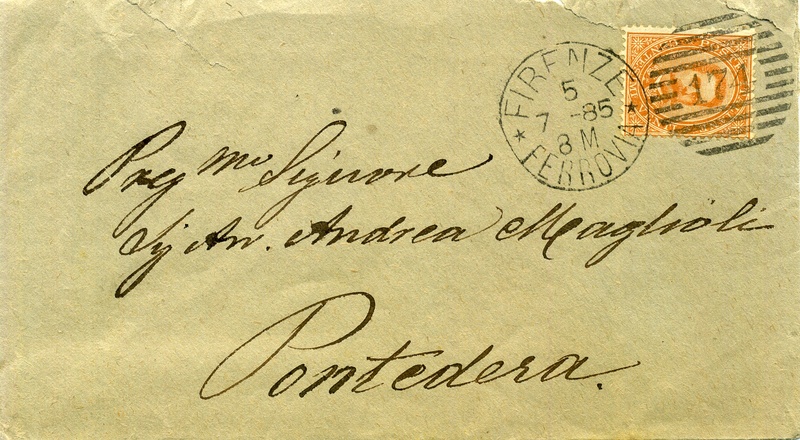 FIRENZE
5
7 -85
8 M
* FERROVIA *
Preg mo Signore
Sig Av. Andrea Maglioli
Pontedera.